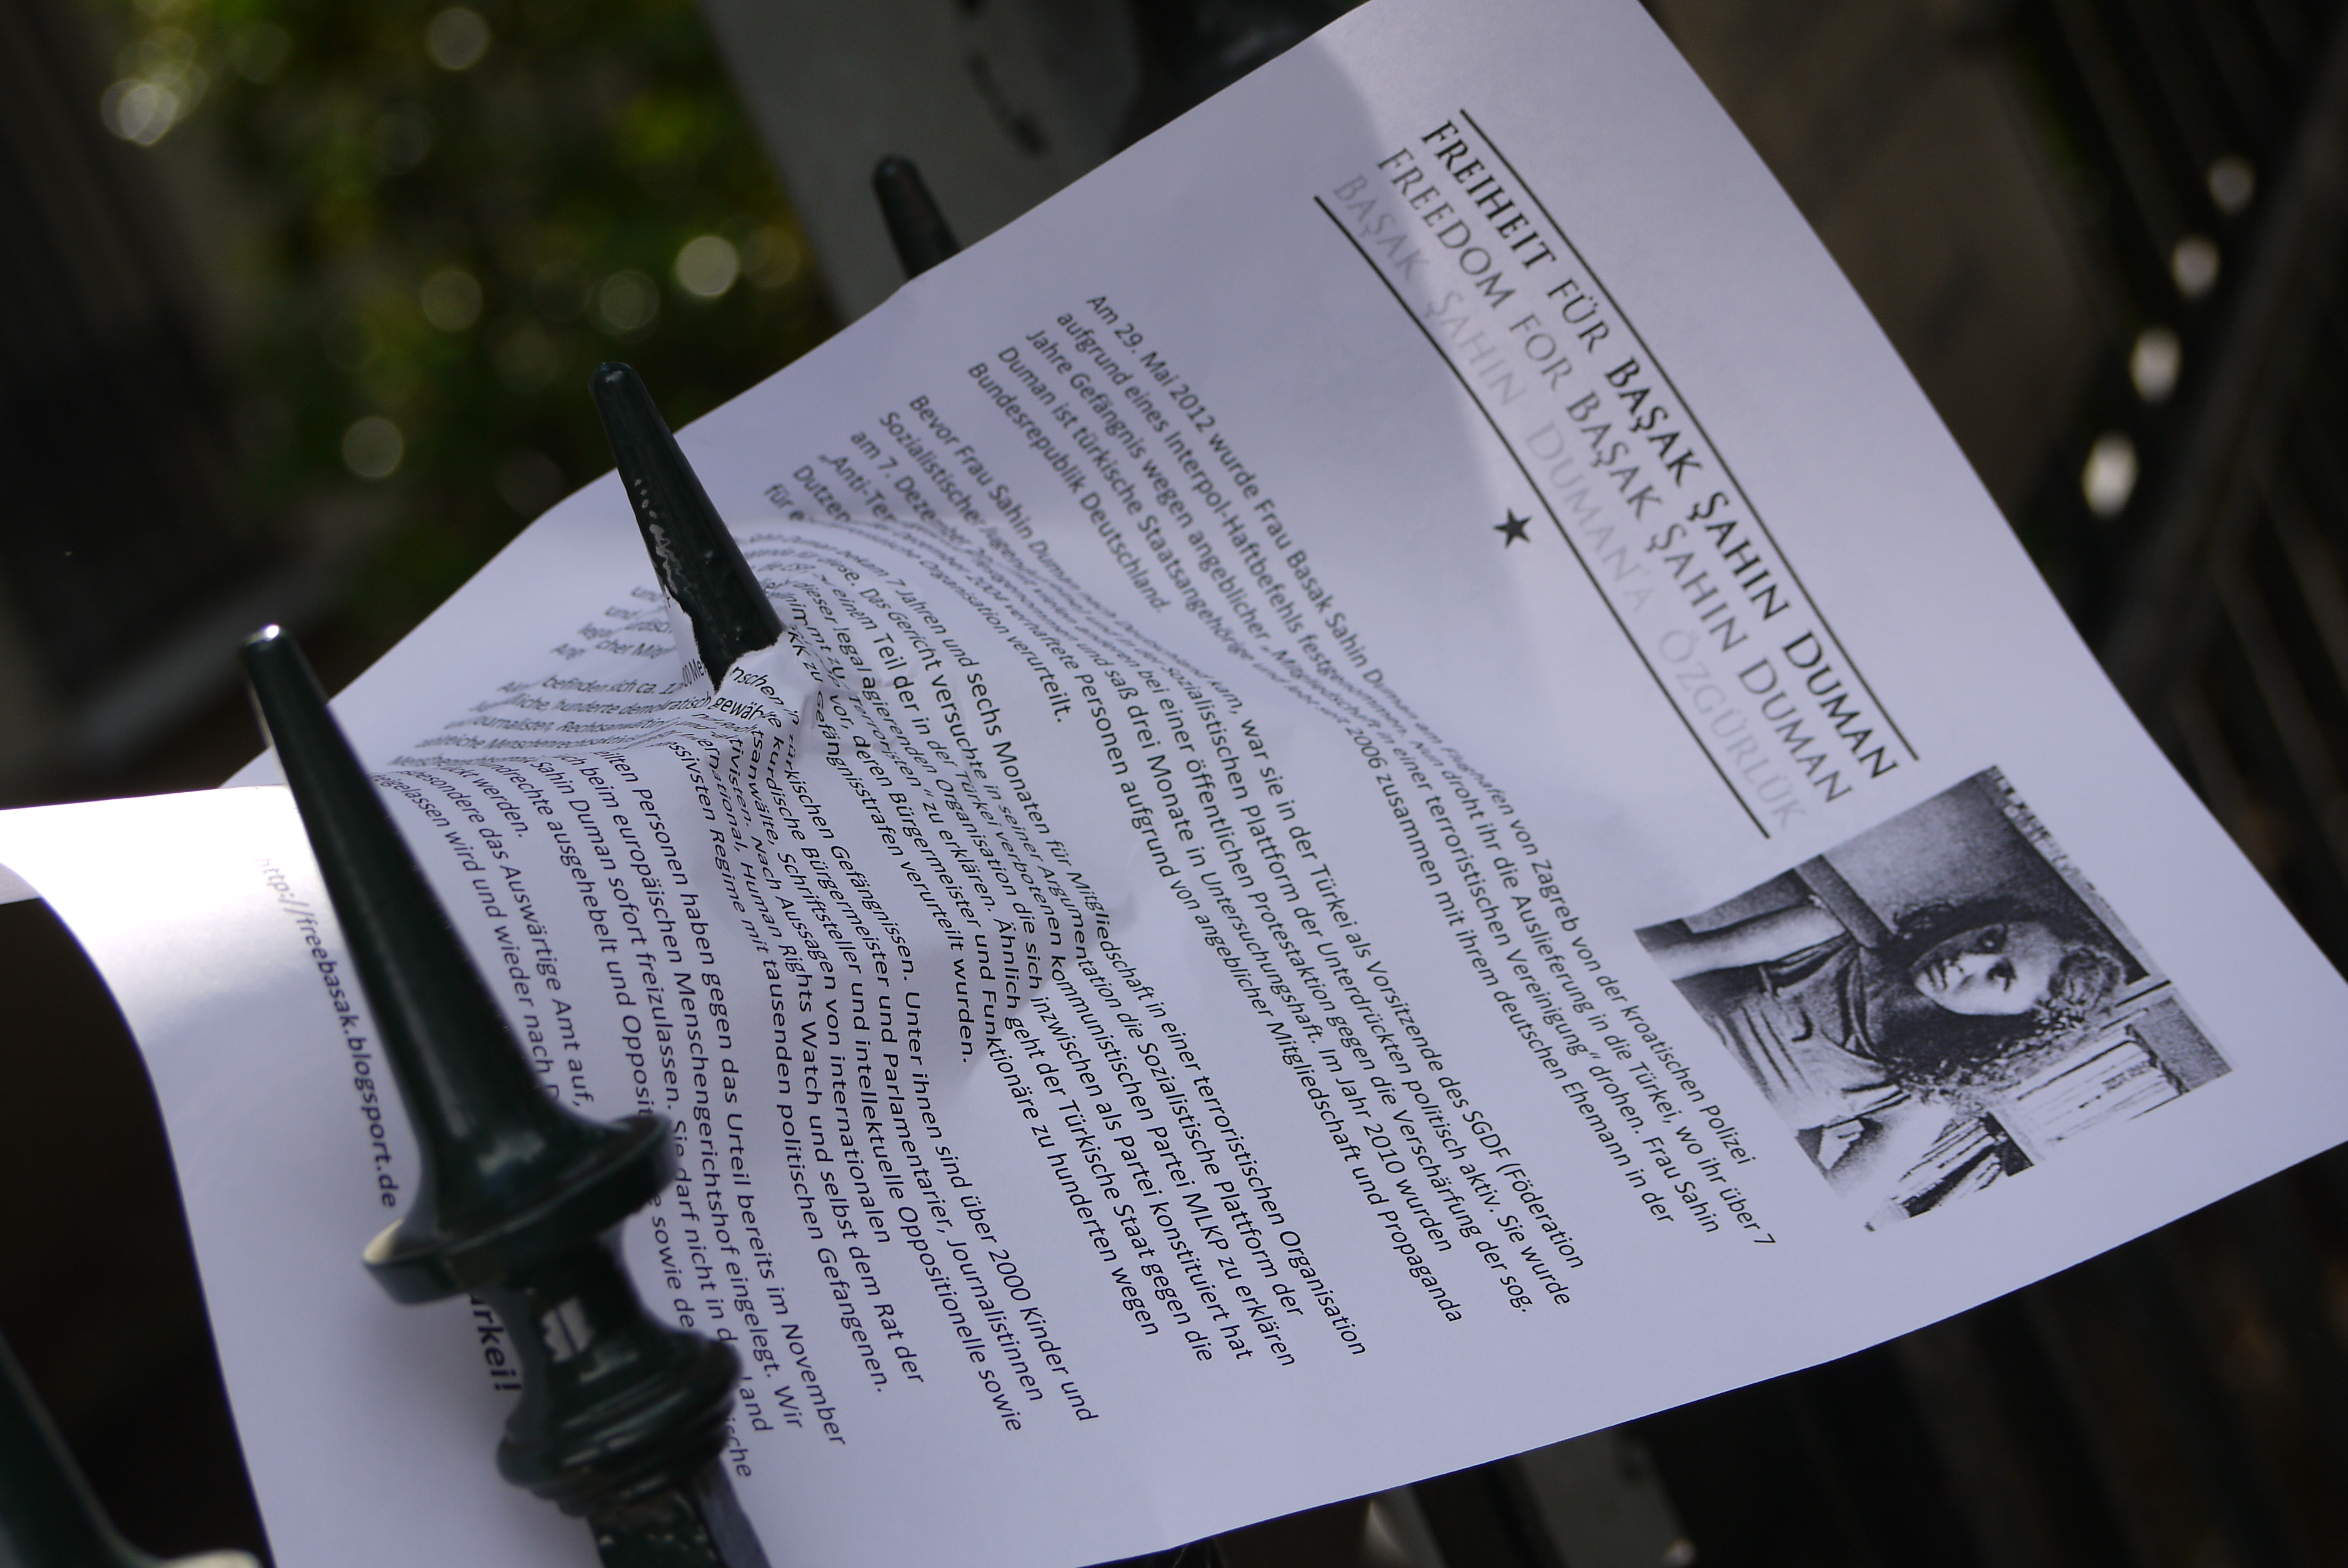 FREIHEIT FÜR BAŞAK ŞAHIN DUMAN
FREEDOM FOR BAŞAK ŞAHIN DUMAN
BAŞAK ŞAHIN DUMAN'A ÖZGÜRLÜK
Am 29. Mai 2012 wurde Frau Basak Sahin Duman am Flughafen von Zagreb von der kroatischen Polizei
aufgrund eines Interpol-Haftbefehls festgenommen. Nun droht ihr die Auslieferung in die Türkei, wo ihr über 7
Jahre Gefängnis wegen angeblicher „Mitgliedschaft in einer terroristischen Vereinigung“ drohen. Frau Sahin
Duman ist türkische Staatsangehörige und lebt seit 2006 zusammen mit ihrem deutschen Ehemann in der
Bundesrepublik Deutschland.
Bevor Frau Sahin Duman nach Deutschland kam, war sie in der Türkei als Vorsitzende des SGDF (Föderation
Sozialistischer Jugendvereine) und der Sozialistischen Plattform der Unterdrückten politisch aktiv. Sie wurde
am 7. Dezember bei einer öffentlichen Protestaktion gegen die Verschärfung der sog.
„Anti-Ter und saß drei Monate in Untersuchungshaft. Im Jahr 2010 wurden
Dutzen verhaftete Personen aufgrund von angeblicher Mitgliedschaft und Propaganda
für e Organisation verurteilt.
bekam 7 Jahren und sechs Monaten für Mitgliedschaft in einer terroristischen Organisation
Das Gericht versuchte in seiner Argumentation die Sozialistische Plattform der
einem Teil der in der Türkei verbotenen kommunistischen Partei MLKP zu erklären
dieser legal agierenden Organisation die sich inzwischen als Partei konstituiert hat
nimmt zu, „Terroristen“ zu erklären. Ähnlich geht der Türkische Staat gegen die
KK zu vor, deren Bürgermeister und Funktionäre zu hunderten wegen
Gefängnisstrafen verurteilt wurden.
befinden sich ca. Menschen in türkischen Gefängnissen. Unter ihnen sind über 2000 Kinder und
liche, hunderte demokratisch gewählte kurdische Bürgermeister und Parlamentarier, Journalistinnen
Journalisten, Rechtsanwälte, Schriftsteller und intellektuelle Oppositionelle sowie
zahlreiche Menschenrechtsaktivisten. Nach Aussagen von internationalen
International, Human Rights Watch und selbst dem Rat der
ssivsten Regime mit tausenden politischen Gefangenen.
eilten Personen haben gegen das Urteil bereits im November
ich beim europäischen Menschengerichtshof eingelegt. Wir
Sahin Duman sofort freizulassen. Sie darf nicht in d Land
rechte ausgehebelt und Opposit sowie de ische
ückt werden.
besondere das Auswärtige Amt auf,
freigelassen wird und wieder nach D
ürkei!
http://freebasak.blogsport.de